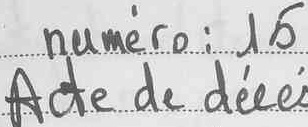 numéro: 15
Acte de décés